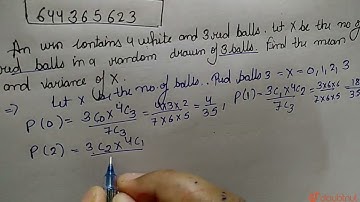 644365623
An urn contains 4 white and 3 red balls. Let X be the no of
red balls in a random drawn of 3 balls. Find the mean
and variance of X.
⇒ Let X be the no. of balls.. Red balls 3 = X = 0,1,2,3
P(0) = 3C0 x 4C3 / 7C3 = 4x3x2 / 7x6x5 = 4/35, P(1) = 3C1 x 4C2 / 7C3 = 3x6x6 / 7x6x5 = 18/35
P(2) = 3C2 x 4C1
doubtnut